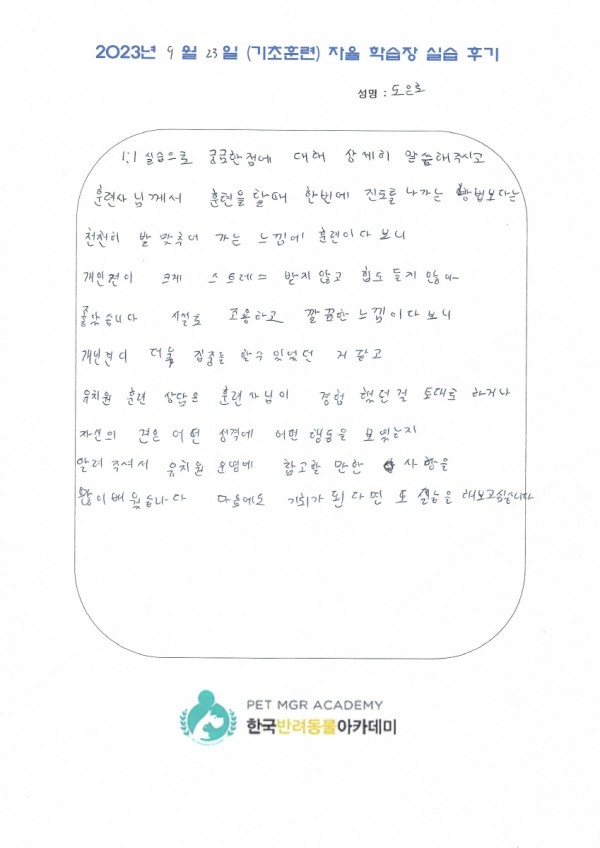 2023년 9월 23일 (기초훈련) 자율 학습장 실습 후기
성명 : 도은호
1:1 실습으로 궁금한점에 대해 상세히 말씀해주시고
훈련사님께서 훈련을 할때 한번에 진도를 나가는 방법보다는
천천히 발 맞추어 가는 느낌에 훈련이다 보니
개인견이 크게 스트레스 받지 않고 힘도 들지 않아
좋았습니다 시설도 조용하고 깔끔한 느낌이다 보니
개인견이 더욱 집중을 할수 있었던 거 같고
유치원 훈련 상담은 훈련사님이 경험 했던걸 토대로 하거나
자신의 견은 어떤 성격에 어떤 행동을 보였는지
알려 주셔서 유치원 운영에 참고할 만한 사항을
많이 배웠습니다 다음에도 기회가 된다면 또 실습을 해보고싶습니다
PET MGR ACADEMY
한국반려동물아카데미